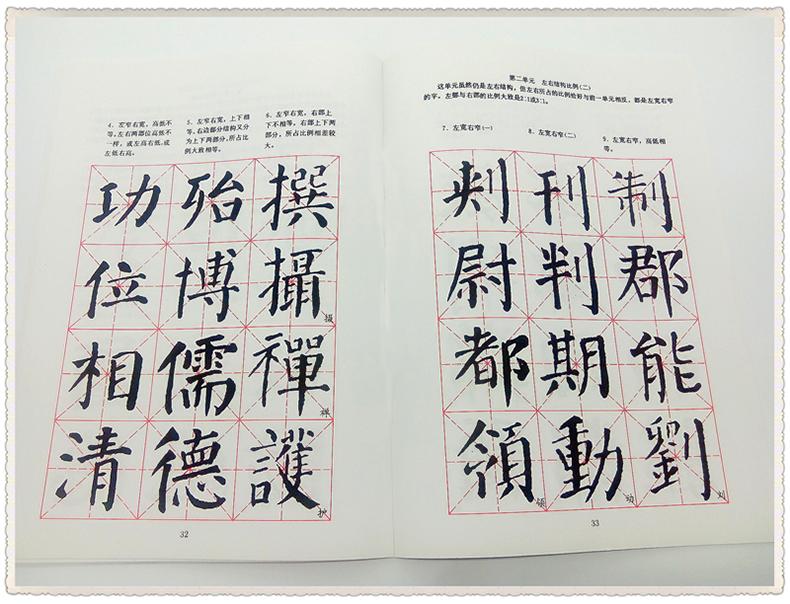 4、左窄右宽，高低不
等。左右两部位高低不
一样，或左高右低，或
左低右高。
5、左窄右宽，上下相
等。右边部分结构又分
为上下两部分，所占比
例大致相等。
6、左窄右宽，右部上
下不相等。右部上下两
部分，所占比例相差较
大。
功 殆 撰
位 博 攝
摄
相 儒 禪
清 德 護
护
32
第二单元 左右结构比例(二)
这单元虽然仍是左右结构，但左右所占的比例恰好与前一单元相反，都是左宽右窄
的字。左部与右部的比例大致是2:1或3:1。
7、左宽右窄(一)
8、左宽右窄(二)
9、左宽右窄，高低相
等。
刾 刊 制
尉 判 郡
都 期 能
領 動 劉
领 动 刘
33